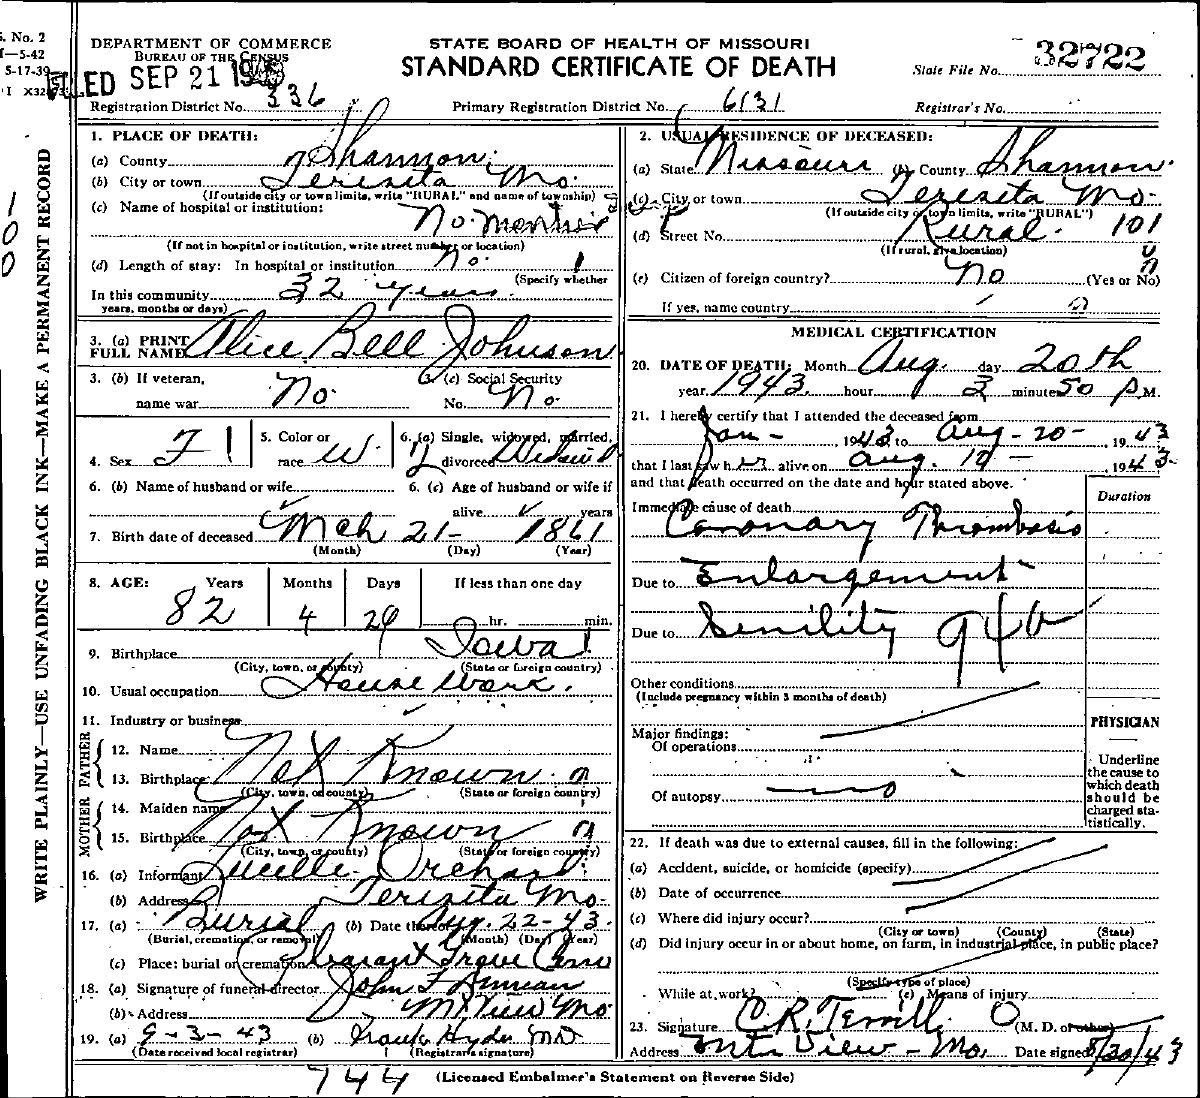 S. No. 2
-5-42
5-17-39
I X32
DEPARTMENT OF COMMERCE
BUREAU OF THE CENSUS
FILED SEP 21 1943
Registration District No. 336
STATE BOARD OF HEALTH OF MISSOURI
STANDARD CERTIFICATE OF DEATH
Primary Registration District No. 6131
State File No. 32722
Registrar's No.
WRITE PLAINLY—USE UNFADING BLACK INK—MAKE A PERMANENT RECORD
100
1. PLACE OF DEATH:
(a) County Shannon
(b) City or town Teresita Mo.
(If outside city or town limits, write "RURAL" and name of township)
(c) Name of hospital or institution:
No.
(If not in hospital or institution, write street number or location)
(d) Length of stay: In hospital or institution No.
(Specify whether
In this community 32 years.
years, months or days)
3. (a) PRINT
FULL NAME Alice Bell Johnson
3. (b) If veteran,
name war No.
3. (c) Social Security
No. No.
4. Sex F 1
5. Color or
race W.
6. (a) Single, widowed, married,
divorced Widowed
6. (b) Name of husband or wife
6. (c) Age of husband or wife if
alive years
7. Birth date of deceased Mch 21- 1861
(Month) (Day) (Year)
8. AGE: Years Months Days If less than one day
82 4 29 hr. min.
9. Birthplace Iowa 1
(City, town, or county) (State or foreign country)
10. Usual occupation House Work.
11. Industry or business
FATHER
12. Name Not Known
13. Birthplace
(City, town, or county) (State or foreign country)
MOTHER
14. Maiden name Not Known
15. Birthplace
(City, town, or county) (State or foreign country)
16. (a) Informant Lucille Orchard
(b) Address Teresita Mo.
17. (a) Burial (b) Date thereof Aug. 22-43.
(Burial, cremation, or removal) (Month) (Day) (Year)
(c) Place: burial or cremation Pleasant Grove Cem
18. (a) Signature of funeral director John F Duncan
(b) Address Mt View Mo
19. (a) 9-3-43 (b) Frank Hyde MD
(Date received local registrar) (Registrar's signature)
2. USUAL RESIDENCE OF DECEASED:
(a) State Missouri (b) County Shannon
(c) City or town Teresita Mo.
(If outside city or town limits, write "RURAL")
(d) Street No. Rural. 101
(If rural, give location)
(e) Citizen of foreign country? No (Yes or No)
If yes, name country
MEDICAL CERTIFICATION
20. DATE OF DEATH: Month Aug. day 20th
year 1943. hour 3 minute 50 P.M.
21. I hereby certify that I attended the deceased from
Jan- , 1943 to Aug-20- , 1943
that I last saw her alive on Aug. 19- , 1943.
and that death occurred on the date and hour stated above.
Duration
Immediate cause of death
Coronary Thrombosis
Due to Enlargement
Due to Senility 94a
Other conditions
(Include pregnancy within 3 months of death)
Major findings:
Of operations
Of autopsy no
PHYSICIAN
Underline
the cause to
which death
should be
charged sta-
tistically.
22. If death was due to external causes, fill in the following:
(a) Accident, suicide, or homicide (specify)
(b) Date of occurrence
(c) Where did injury occur?
(City or town) (County) (State)
(d) Did injury occur in or about home, on farm, in industrial place, in public place?
(Specify type of place)
While at work? (e) Means of injury
23. Signature C.R. Terrill (M. D. or other)
Address Mtn View - Mo. Date signed 8/30/43
744
(Licensed Embalmer's Statement on Reverse Side)